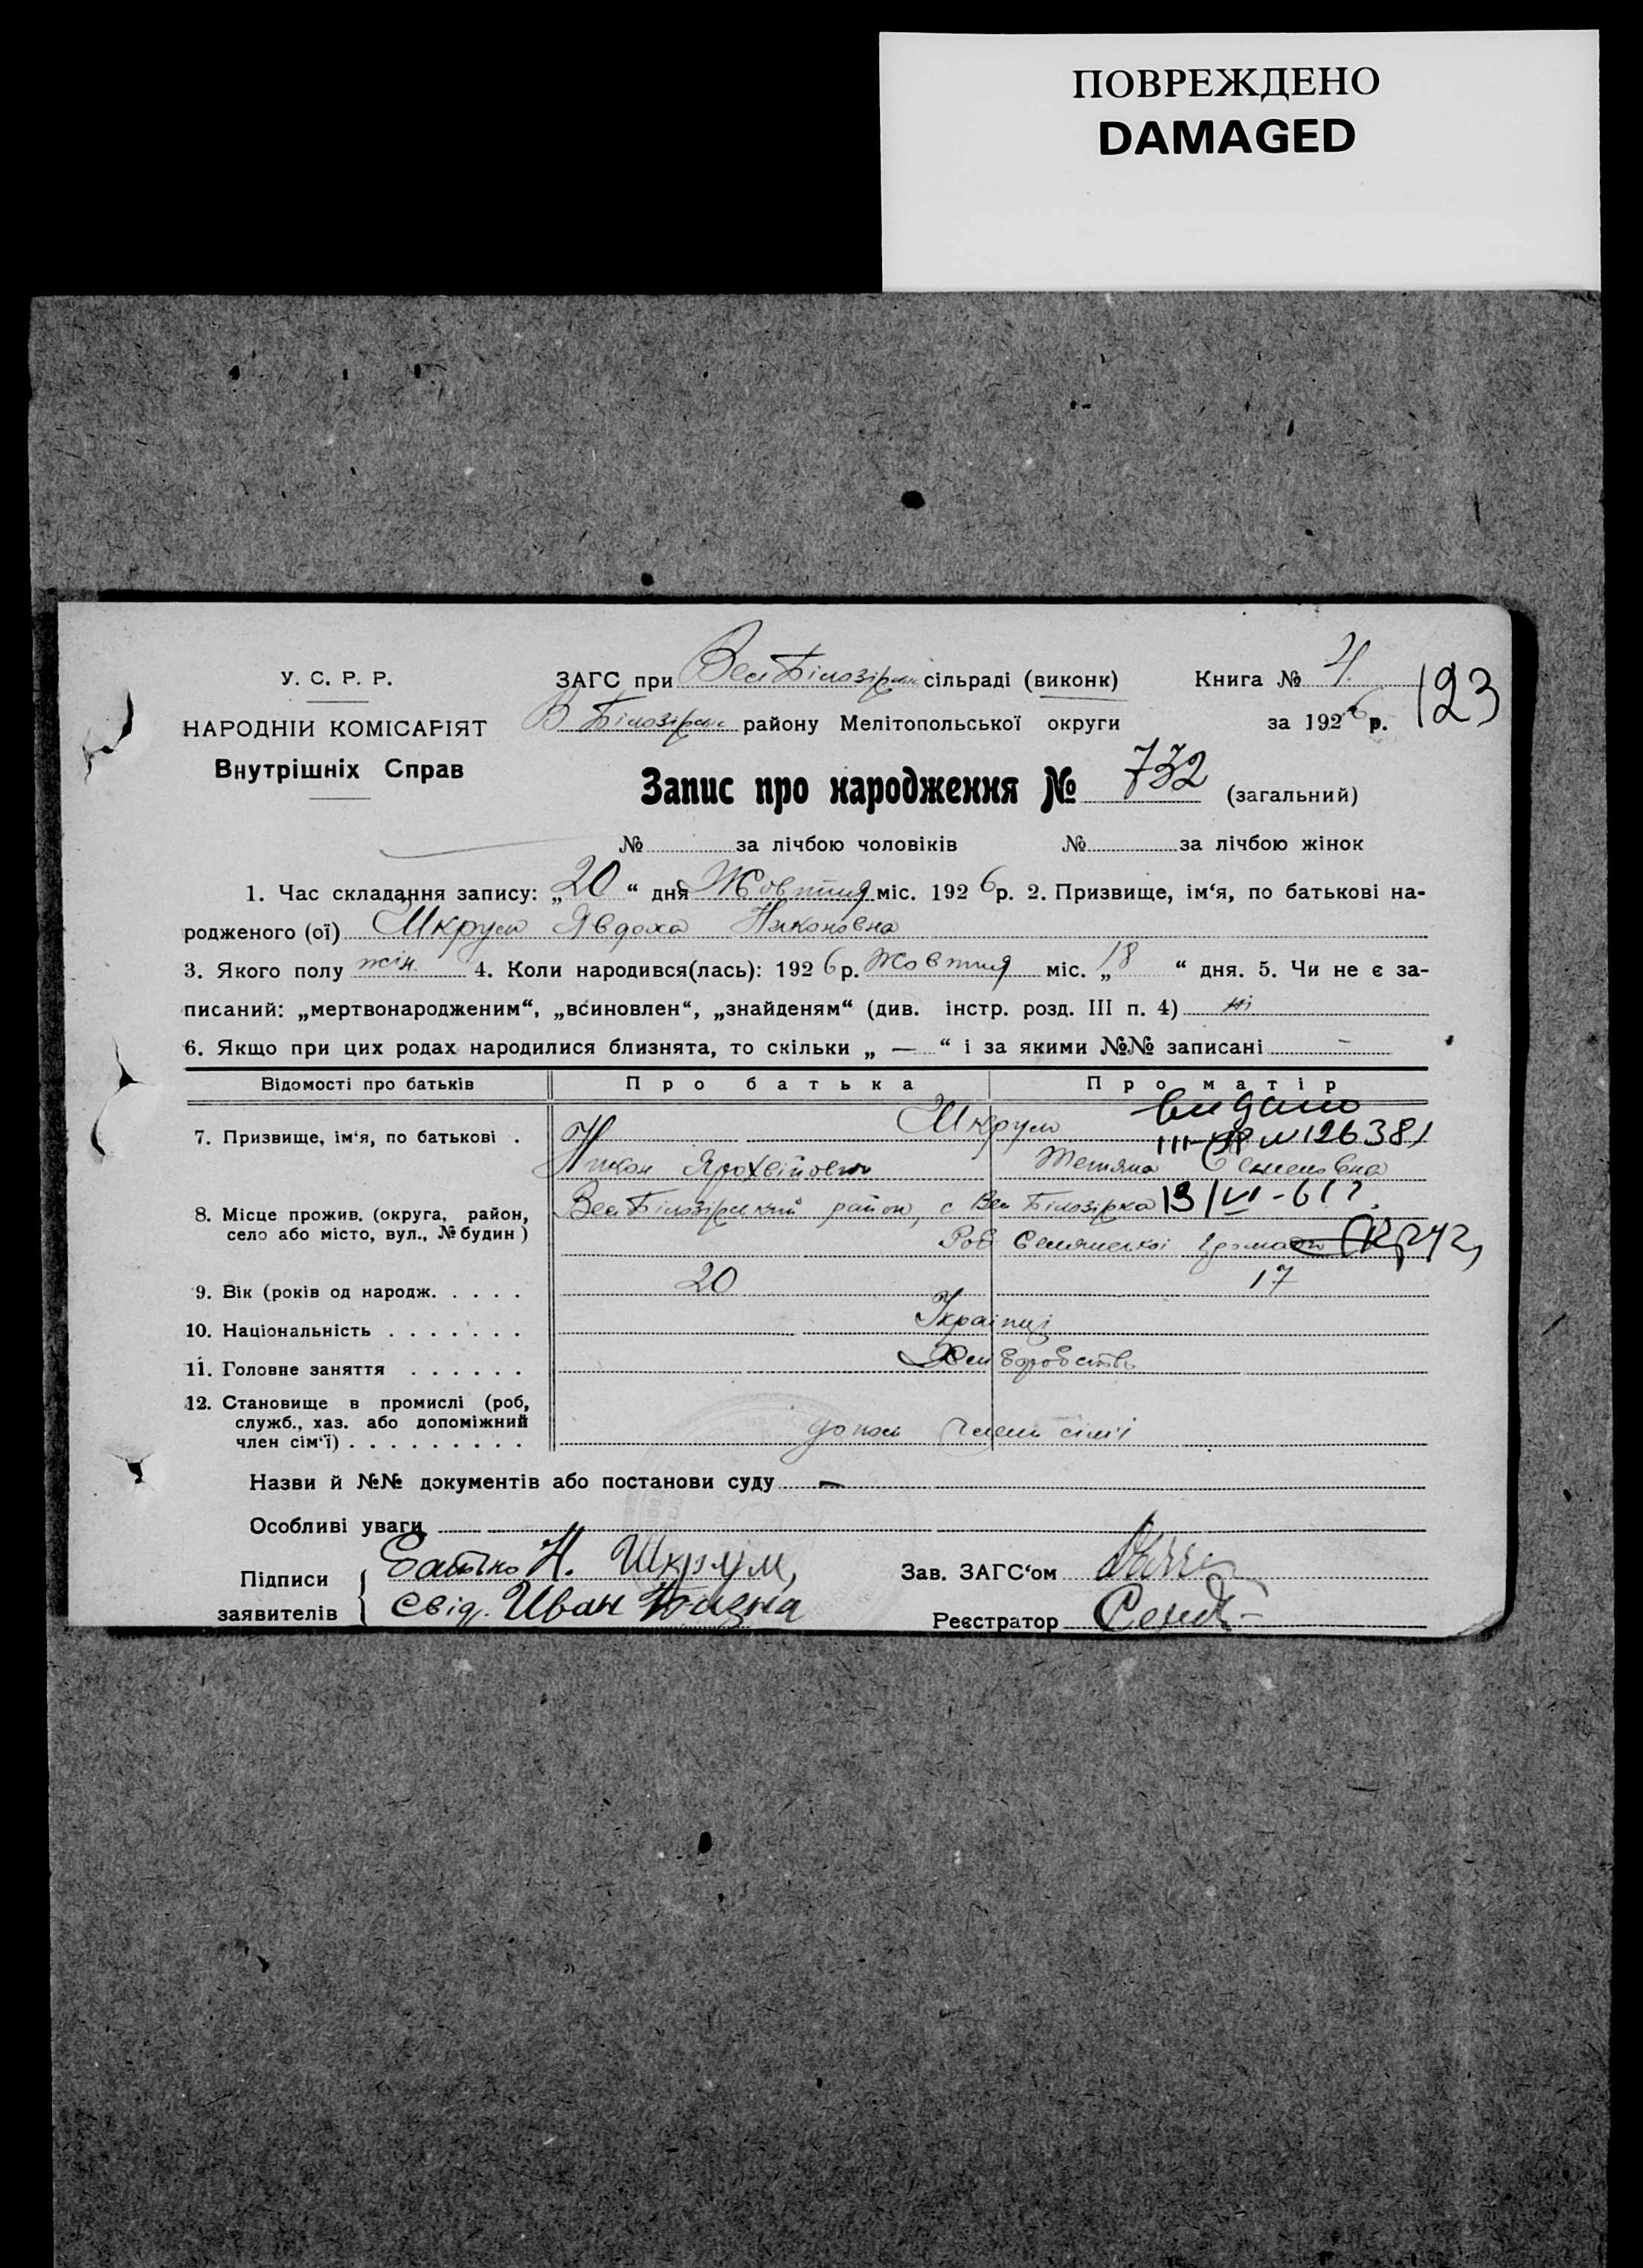 ПОВРЕЖДЕНО
DAMAGED
У. С. Р. Р.
НАРОДНІИ КОМІСАРІЯТ
Внутрішніх Справ
ЗАГС при Вел Білозірськ сільраді (виконк)
В Білозірськ району Мелітопольської округи
Книга № 4
за 1926 р.
123
Запис про народження № 732 (загальний)
№ за лічбою чоловіків № за лічбою жінок
1. Час складання запису: „20“ дня Жовтня міс. 1926 р. 2. Призвище, ім‘я, по батькові на-
родженого (ої) Шкрум Явдоха Никоновна
3. Якого полу жін. 4. Коли народився(лась): 1926 р. Жовтня міс. „18“ дня. 5. Чи не є за-
писаний: „мертвонародженим“, „всиновлен“, „знайденям“ (див. інстр. розд. III п. 4) ні
6. Якщо при цих родах народилися близнята, то скільки „ — “ і за якими №№ записані –
Відомості про батьків Про батька Про матір
видано
7. Призвище, ім‘я, по батькові . Шкрум
III № 126381
Никон Тетяна Семеновна
8. Місце прожив. (округа, район, село або місто, вул., № будин) Вел Білозірський район, с Вел Білозірка 13/VI-61
9. Вік (років од народж. . . . . 20 17
10. Національність . . . . . . . Українці
11. Головне заняття . . . . . . Хліборобство
12. Становище в промислі (роб,
служб., хаз. або допоміжний
член сім‘ї) . . . . . . . . . допом член сім'ї
Назви й №№ документів або постанови суду —
Особливі уваги
Підписи Батько Н. Шкрум,
заявителів Свід. Иван
Зав. ЗАГС‘ом
Реєстратор